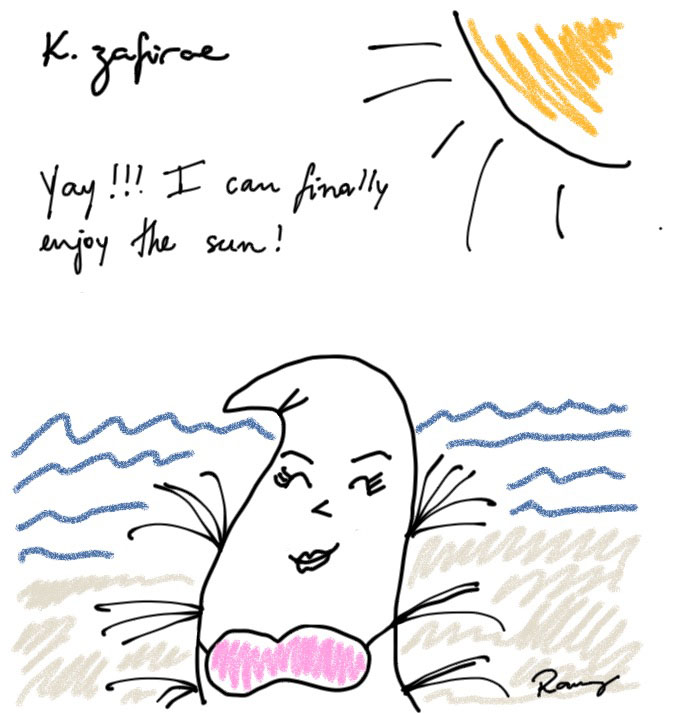 K. zafirae
Yay!!! I can finally
enjoy the sun!